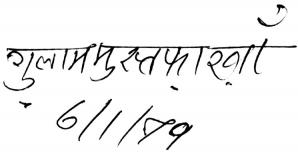 गुलाम मुस्तफ़ा ख़ाँ
6/1/79